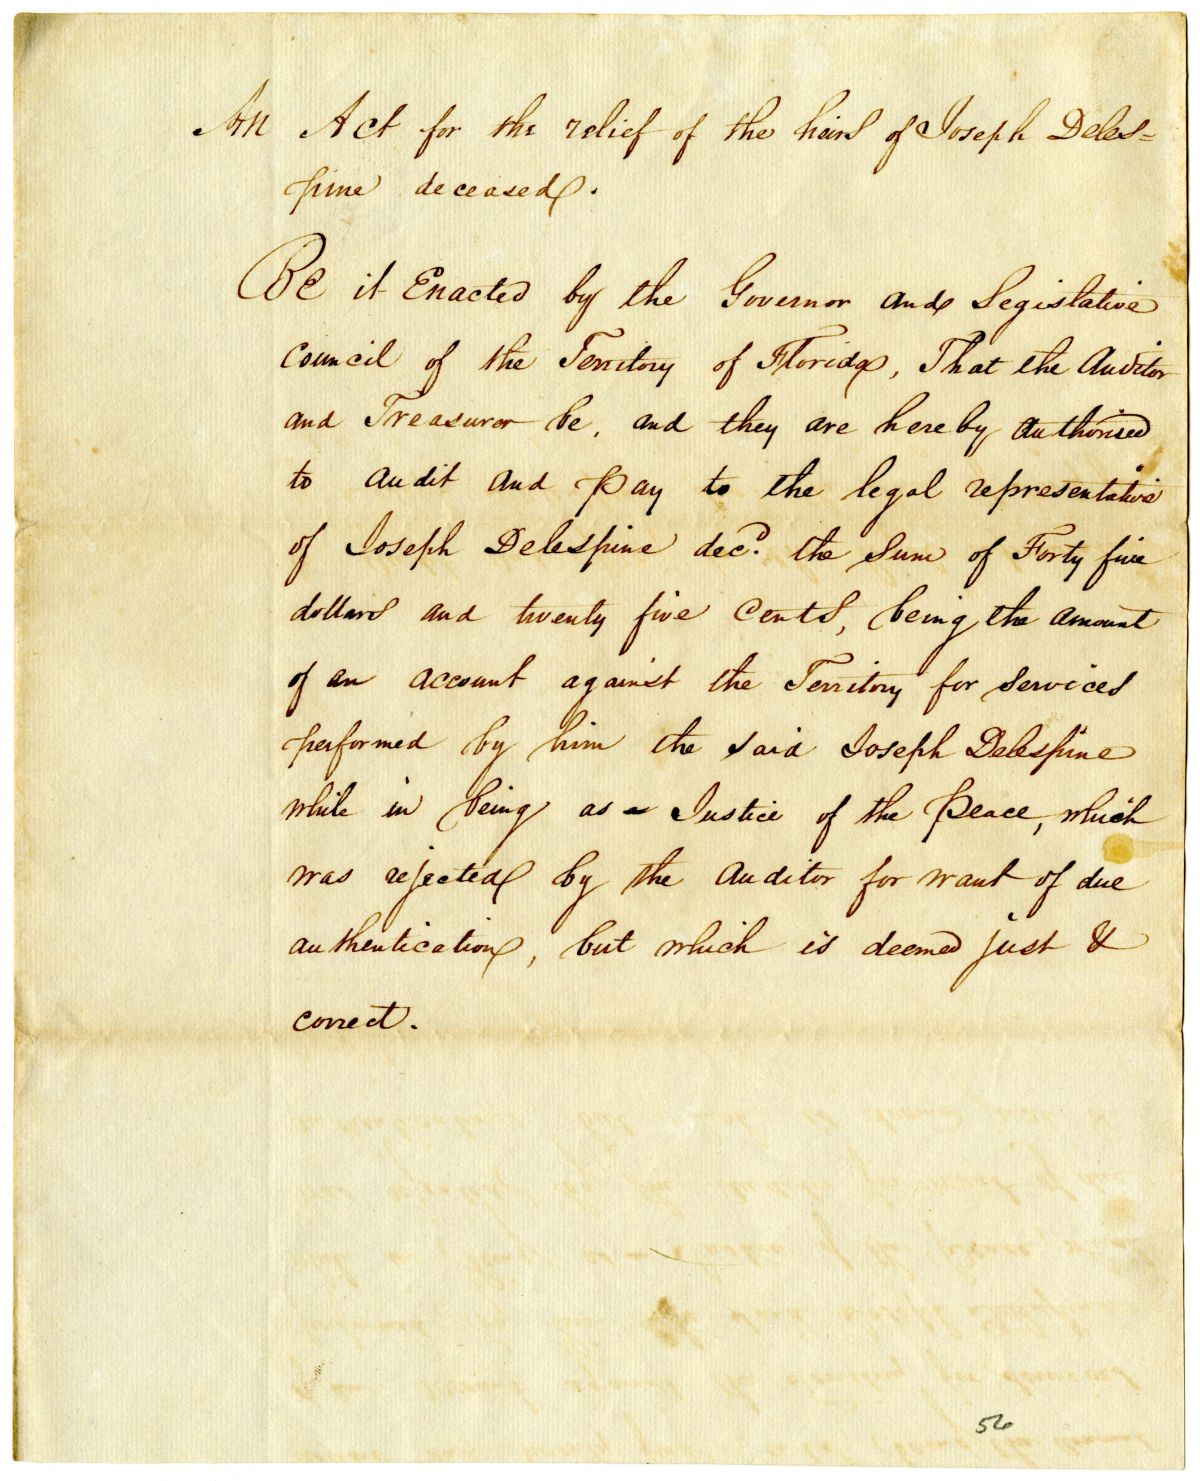 An Act for the relief of the heirs of Joseph Deles=
pine deceased.
Be it Enacted by the Governor and Legislative
Council of the Territory of Florida, That the Auditor
and Treasurer be, and they are hereby authorised
to audit and pay to the legal representative
of Joseph Delespine decd. the Sum of Forty five
dollars and twenty five Cents, being the amount
of an account against the Territory for services
performed by him the said Joseph Delespine
while in being as a Justice of the Peace, which
was rejected by the Auditor for want of due
authentication, but which is deemed just &
correct.
56